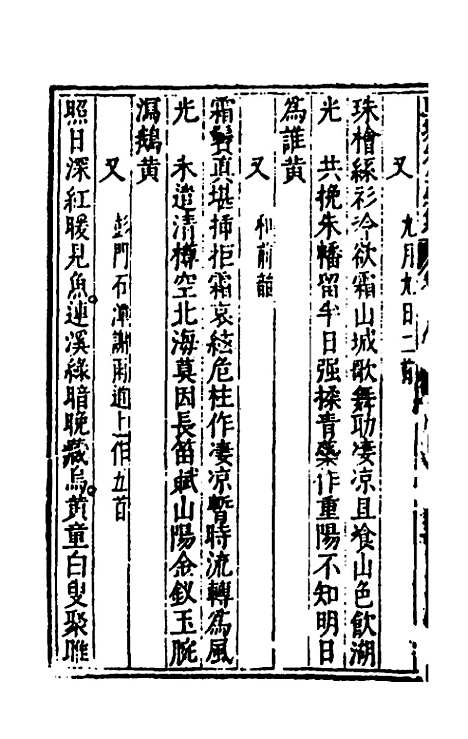 又　九月九日二首
珠檜絲衫冷欲霜山城歌舞助凄涼且飡山色飲湖
光　共挽朱轓留半日强揉青蘂作重陽不知明日
為誰黄
又　和前韻
霜鬓真堪揷拒霜哀絃危柱作凄凉暫時流轉為風
光　未遣清樽空北海莫因長笛賦山陽金釵玉腕
瀉鵝黄
又　彭門石潭謝雨道上作五首
照日深紅暖見魚連溪緑暗晚藏烏黄童白叟聚睢